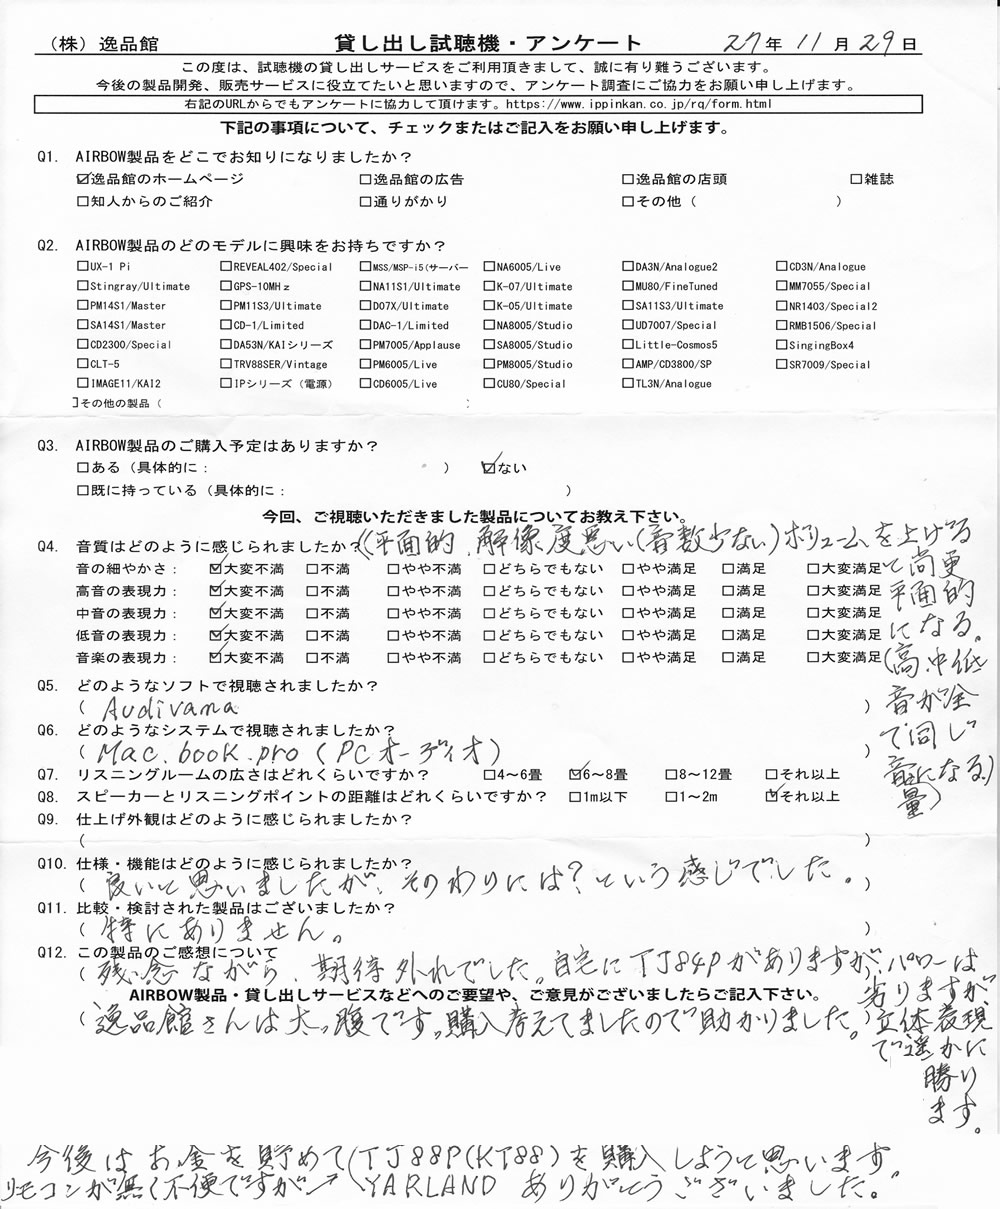 (株) 逸品館 貸し出し試聴機・アンケート 27年 11月 29日
この度は、試聴機の貸し出しサービスをご利用頂きまして、誠に有り難うございます。
今後の製品開発、販売サービスに役立てたいと思いますので、アンケート調査にご協力をお願い申し上げます。
右記のURLからでもアンケートに協力して頂けます。https://www.ippinkan.co.jp/rq/form.html
下記の事項について、チェックまたはご記入をお願い申し上げます。
Q1. AIRBOW製品をどこでお知りになりましたか？
☑逸品館のホームページ □逸品館の広告 □逸品館の店頭 □雑誌
□知人からのご紹介 □通りがかり □その他（ ）
Q2. AIRBOW製品のどのモデルに興味をお持ちですか？
□UX-1 Pi □REVEAL402/Special □MSS/MSP-i5(サーバー □NA6005/Live □DA3N/Analogue2 □CD3N/Analogue
□Stingray/Ultimate □GPS-10MHz □NA11S1/Ultimate □K-07/Ultimate □MU80/FineTuned □MM7055/Special
□PM14S1/Master □PM11S3/Ultimate □D07X/Ultimate □K-05/Ultimate □SA11S3/Ultimate □NR1403/Special2
□SA14S1/Master □CD-1/Limited □DAC-1/Limited □NA8005/Studio □UD7007/Special □RMB1506/Special
□CD2300/Special □DA53N/KAIシリーズ □PM7005/Applause □SA8005/Studio □Little-Cosmos5 □SingingBox4
□CLT-5 □TRV88SER/Vintage □PM6005/Live □PM8005/Studio □AMP/CD3800/SP □SR7009/Special
□IMAGE11/KAI2 □IPシリーズ（電源） □CD6005/Live □CU80/Special □TL3N/Analogue
]その他の製品（
Q3. AIRBOW製品のご購入予定はありますか？
□ある（具体的に： ） ☑ない
□既に持っている（具体的に： ）
今回、ご視聴いただきました製品についてお教え下さい。
Q4. 音質はどのように感じられましたか？(平面的、解像度悪い(音数少ない)ボリュームを上げる
と尚更
平面的
になる。
(高、中低
音が全
て同じ
音量になる)
音の細やかさ： ☑大変不満 □不満 □やや不満 □どちらでもない □やや満足 □満足 □大変満足
高音の表現力： ☑大変不満 □不満 □やや不満 □どちらでもない □やや満足 □満足 □大変満足
中音の表現力： ☑大変不満 □不満 □やや不満 □どちらでもない □やや満足 □満足 □大変満足
低音の表現力： ☑大変不満 □不満 □やや不満 □どちらでもない □やや満足 □満足 □大変満足
音楽の表現力： ☑大変不満 □不満 □やや不満 □どちらでもない □やや満足 □満足 □大変満足
Q5. どのようなソフトで視聴されましたか？
（ Audivana ）
Q6. どのようなシステムで視聴されましたか？
（ Mac.book.pro (PCオーディオ) ）
Q7. リスニングルームの広さはどれくらいですか？ □4～6畳 ☑6～8畳 □8～12畳 □それ以上
Q8. スピーカーとリスニングポイントの距離はどれくらいですか？ □1m以下 □1～2m ☑それ以上
Q9. 仕上げ外観はどのように感じられましたか？
（ ）
Q10. 仕様・機能はどのように感じられましたか？
（ 良いと思いましたが、そのわりには？という感じでした。 ）
Q11. 比較・検討された製品はございましたか？
（ 特にありません。 ）
Q12. この製品のご感想について
（ 残念ながら、期待外れでした。自宅にTJ84Pがありますが、パワーは
劣りますが、
立体表現
で遥かに
勝り
ます。
AIRBOW製品・貸し出しサービスなどへのご要望や、ご意見がございましたらご記入下さい。
（ 逸品館さんは太っ腹です。購入考えてましたので助かりました。 ）
今後はお金を貯めて(TJ88P(KT88)を購入しようと思います。
リモコンが無く不便ですが YARLAND ありがとうございました。